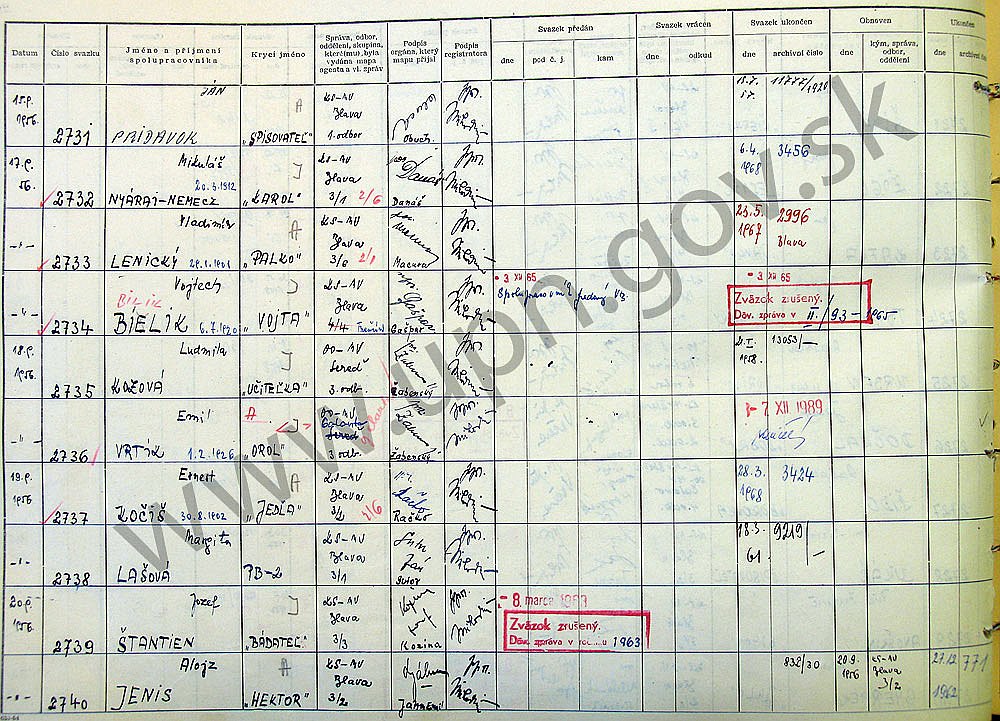 Datum
Číslo svazku
Jméno a příjmení
spolupracovníka
Krycí jméno
Správa, odbor,
oddělení, skupina,
které(mu) byla
vydána mapa
agenta a vl. zpráv
Podpis
orgána, který
mapu přijal
Podpis
registratora
Svazek předán
dne
pod č. j.
kam
Svazek vrácen
dne
odkud
Svazek ukončen
dne
archivní číslo
Obnoven
dne
kým, správa,
odbor,
oddělení
Ukončen
dne
archivní číslo
www.upn.gov.sk
JÁN
2731 PRÍDAVOK "SPISOVATEĽ" A
KS-AV
Ilava
1. odbor
Obuch
1956
17.9.
56.
2732
Mikuláš
NYÁRAI-NEMECZ 20.3.1912
"KAROL"
KS-AV
Ilava
3/1 2/6
Danáš
6.4.
1968
3456
2733
Vladimír
LENICKÝ
"PALKO" A
KS-AV
Ilava
3/6 2/1
Macura
23.5.
1967
2996
Ilava
2734
Vojtech
BIELIK 6.7.1920
"VOJTA"
KS-AV
Ilava
4/4
Gašpar
3 XII 65
3 XII 65
Zväzok zrušený.
Dôv. zpráva v II./93-1965
18.9.
1956.
2735
Ludmila
KOŽOVÁ
"UČITEĽKA"
OO-AV
Sereď
3. odb.
Žabenský
1958.
13053/-
2736
Emil
VRTÍK 1.2.1926
A
"OROL"
OO-AV
Galanta
Sereď
3 odb.
Žabenský
7 XII 1989
19.9.
1956
2737
Ernest
KOČIŠ 30.8.1902
"JEDĽA" A
KS-AV
Ilava
3/2
Raško
28.3.
1968
3424
2738
Margita
LAŠOVÁ
PB-2
KS-AV
Ilava
3/1
Šutor
18.5.
61.
9219/-
20.9.
1956.
2739
Jozef
ŠTANTIEN
"BÁDATEĽ"
KS-AV
Ilava
3/3
Kozina
8. marca 1963
Zväzok zrušený.
Dôv. zpráva v roku 1963
2740
Alojz
JENIS
"HEKTOR" A
KS-AV
Ilava
3/2
832/30
20.9.
1956
KS-AV
Ilava
3/2
27.12
1962
771